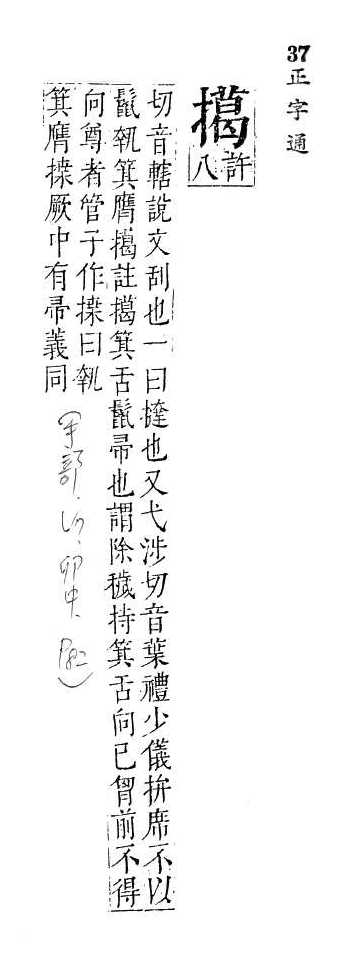 37 正字通
擖 許八
切音轄說文刮也一曰撻也又弋涉切音葉禮少儀拚席不以
鬛執箕膺擖註擖箕舌鬛帚也謂除穢持箕舌向已胷前不得
向尊者管子作揲曰執
箕膺揲厥中有帚義同
手部